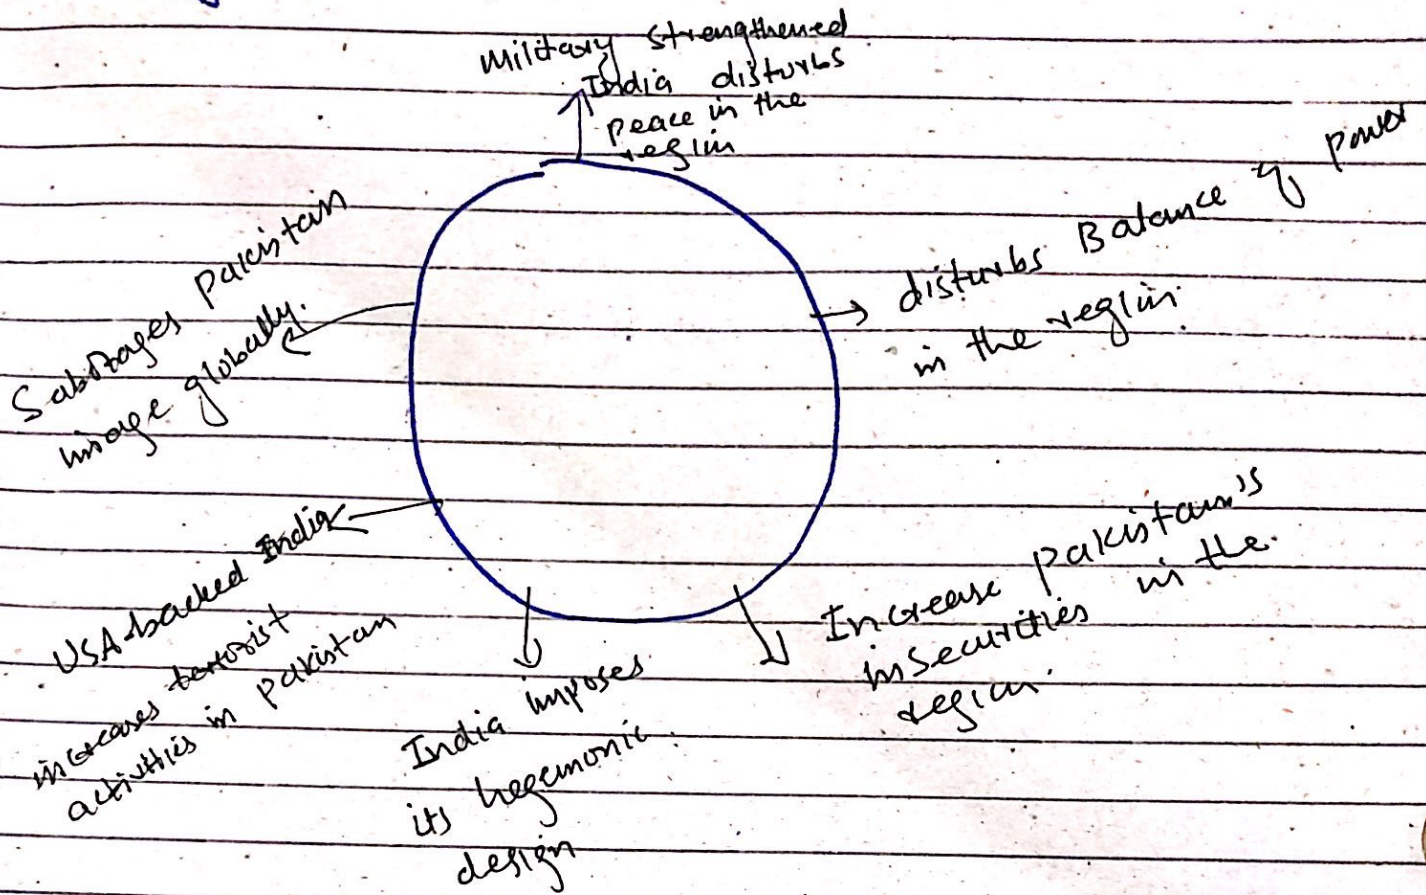 Military strengthened
India disturbs
peace in the
region
disturbs Balance of power
in the region.
Increase Pakistan's
insecurities in the
region.
India imposes
its hegemonic
design
USA-backed India
increases terrorist
activities in Pakistan
Sabotages Pakistan
image globally.